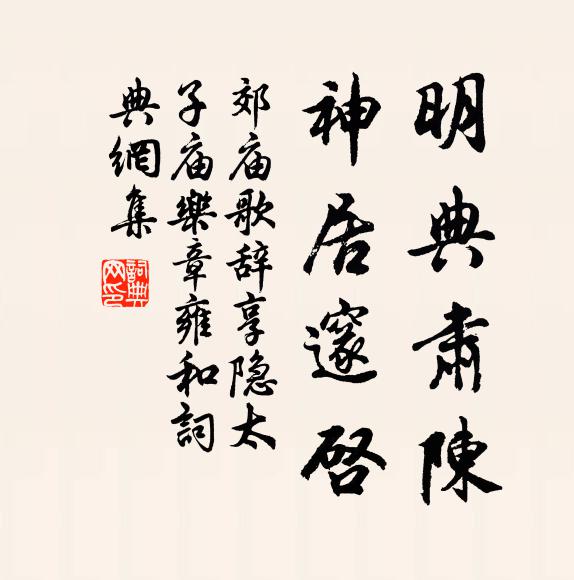 明典肅陳
神居邃啓
郊庙歌辞享隐太
子庙樂章雍和詞
典網集
詞典网印